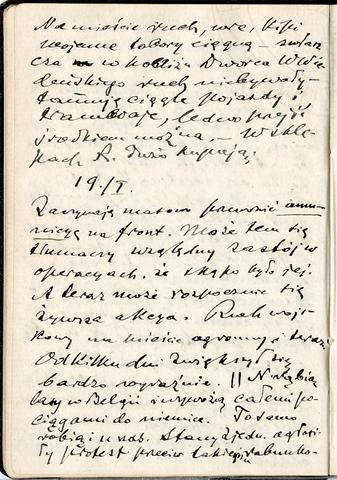 Na mieście ruch, wre, kipi
wojenne tabory ciągną – zwłasz
cza w pobliżu Dworca Wie
deńskiego ruch niebywały –
tamują ciągle pojazdy i
tramwaje, ledwo przejść
środkiem można. – W skle
pach dużo kupują.
19/I.
Zaczynają masowo przewozić amu-
nicyę na front. Może tem się
tłumaczy względny zastój w
operacyach, że skąpo było jej.
A teraz może rozpocznie się
żywsza akcya. Ruch woj-
skowy na mieście ogromny i teraz
Od kilku dni zwiększył się
bardzo wyraźnie. || N. rąbią
lasy w Belgii i wywożą całemi po-
ciągami do niemiec. To samo
robią i u nas. Stany Zjedn. ogłosi-
ły protest przeciw takiemu rabunko-